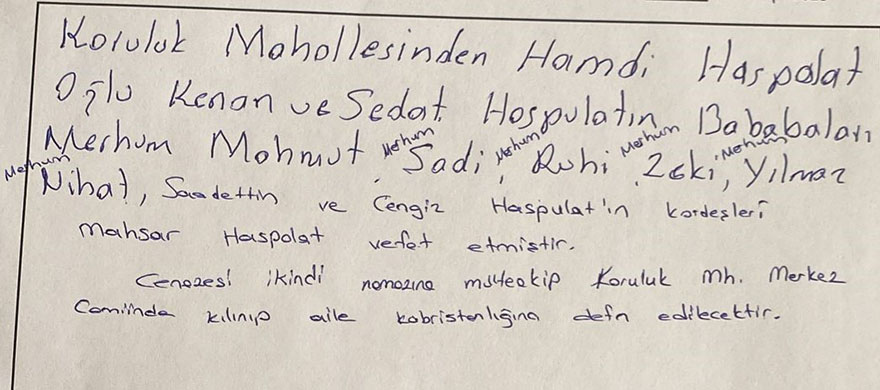 Koruluk Mahallesinden Hamdi Haspolat
Oğlu Kenan ve Sedat Hospulatın Bababaları
Merhum Mahmut, Merhum Sadi, Merhum Ruhi, Merhum Zeki, Merhum Yılmaz
Merhum Nihat, Saadettin ve Cengiz Haspulat'ın kardeşleri
Mahsar Haspolat vefat etmiştir.
Cenazesi ikindi namazına müteakip Koruluk mh. Merkez
Camiinda kılınıp aile kabristanlığına defn edilecektir.